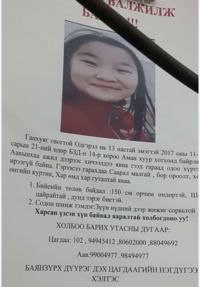 ВАЛЖИЛЖ
Ганхуяг овогтой Одгэрэл нь 13 настай эмэгтэй 2017 оны 11-
сарын 21-ний өдөр БЗД-н 14-р хороо Амак хуур хотхонд байрлах
Аавынхаа ажил дээрээс хичээлдээ явна гээд гараад одоо хүртэл
ирээгүй байна. Гэрээсээ гарахдаа Саарал малгай , бор ороолт,
өнгийн куртик, Хар өнд хар гуталтай явна.
1. Биеийн төлөв байдал :150 см орчим өндөртэй,
царайтай , дунд зэрэг биетэй.
2. Содон шинж тэмдэг: Зүүн нүдний дээр жижиг сорвитой
Харсан үзсэн хүн байвал яаралтай холбогдоно уу!
ХОЛБОО БАРИХ УТАСНЫ ДУГААР:
Цагдаа: 102 , 94945412 ,80602000 ,88049692
Аав:99064977 .98494977
БАЯНЗҮРХ ДҮҮРЭГ ДЭХ ЦАГДААГИЙН НЭГДҮГЭЭР
ХЭЛТЭС